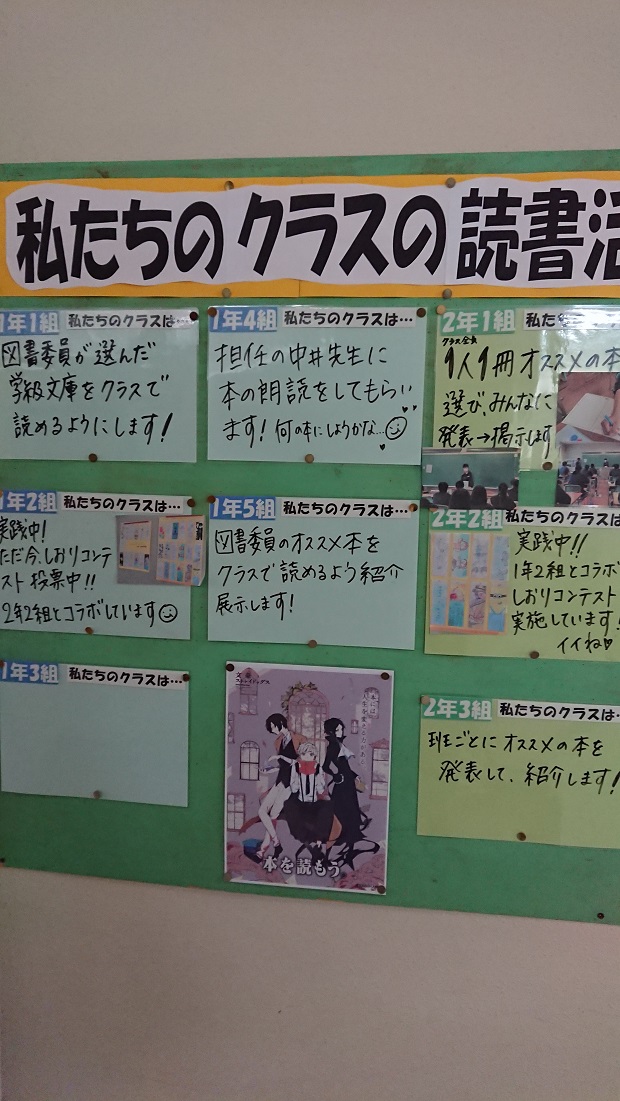 私たちのクラスの読書活
1年1組 私たちのクラスは…
図書委員が選んだ
学級文庫をクラスで
読めるようにします!
1年4組 私たちのクラスは…
担任の中井先生に
本の朗読をしてもらい
ます! 何の本にしようかな…
2年1組 私た
クラス全員
1人1冊オススメの本
選び、みんなに
発表→掲示します
1年2組 私たちのクラスは…
実践中!
ただ今、しおりコンテ
スト投票中!!
2年2組とコラボしています
1年5組 私たちのクラスは…
図書委員のオススメ本を
クラスで読めるよう紹介
展示します!
2年2組 私たちのクラスは
実践中!!
1年2組とコラボ
しおりコンテスト
実施しています!
イイね
1年3組 私たちのクラスは…
文豪
ストレイドッグス
本を読もう
2年3組 私たちのクラスは…
班ごとにオススメの本を
発表して、紹介します!